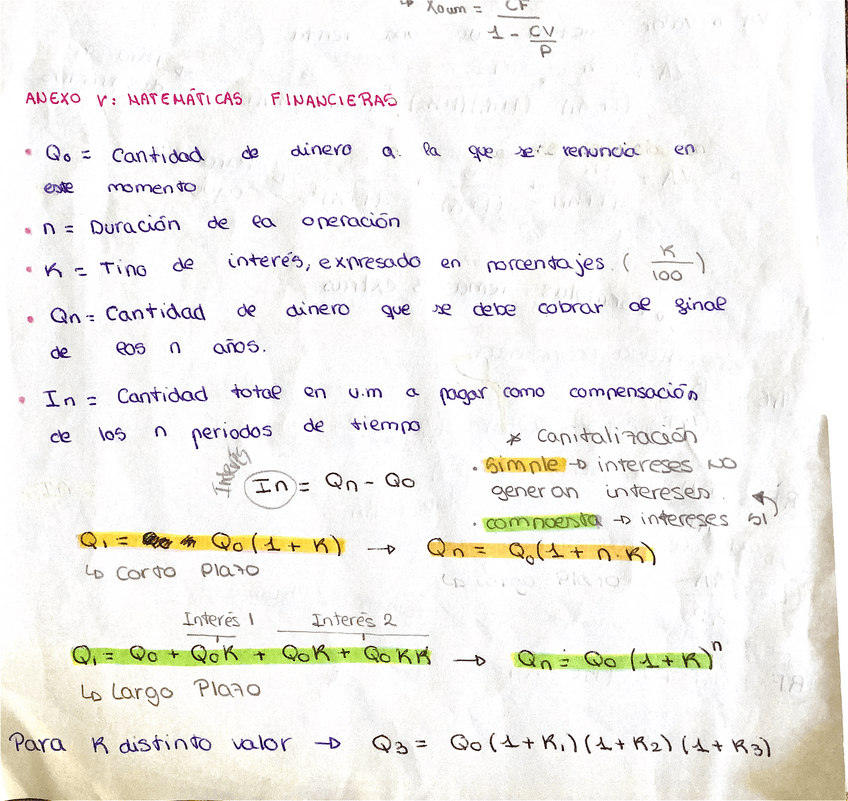 → Xoum = CF / 1 - CV/P
ANEXO V: MATEMÁTICAS FINANCIERAS
• Q₀ = Cantidad de dinero a la que se renuncia en
este momento
• n = Duración de la operación
• K = Tipo de interés, expresado en porcentajes. (K/100)
• Qn = Cantidad de dinero que se debe cobrar al final
de los n años.
• In = Cantidad total en u.m a pagar como compensación
de los n periodos de tiempo
* Capitalización
• simple → intereses NO
generan intereses.
• compuesta → intereses SI
Interés
In = Qn - Q₀
Q₁ = Q₀(1 + K) → Qn = Q₀(1 + n·K)
↳ Corto Plazo
Interés 1 Interés 2
Q₁ = Q₀ + Q₀K + Q₀K + Q₀KK → Qn = Q₀ (1 + K)ⁿ
↳ Largo Plazo
Para K distinto valor → Q₃ = Q₀(1 + K₁)(1 + K₂)(1 + K₃)